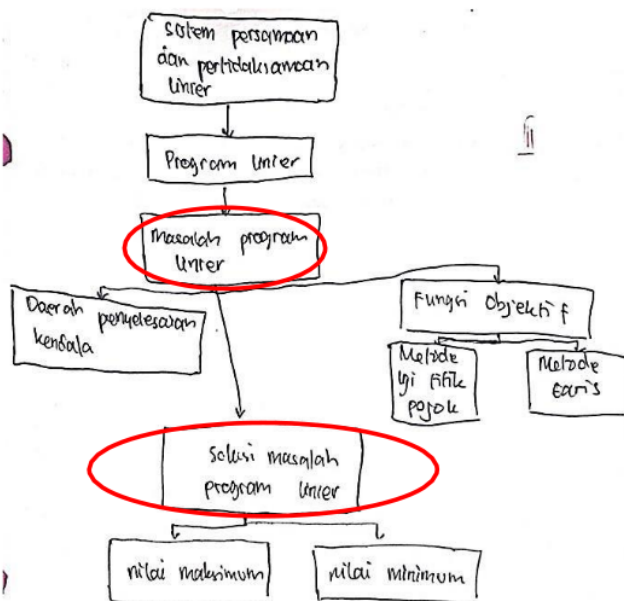 sistem persamaan
dan pertidaksamaan
linier
Program linier
masalah program
linier
Daerah penyelesaian
kendala
Fungsi objektif
Metode
uji titik
pojok
Metode
Garis
Solusi masalah
program linier
nilai maksimum
nilai minimum